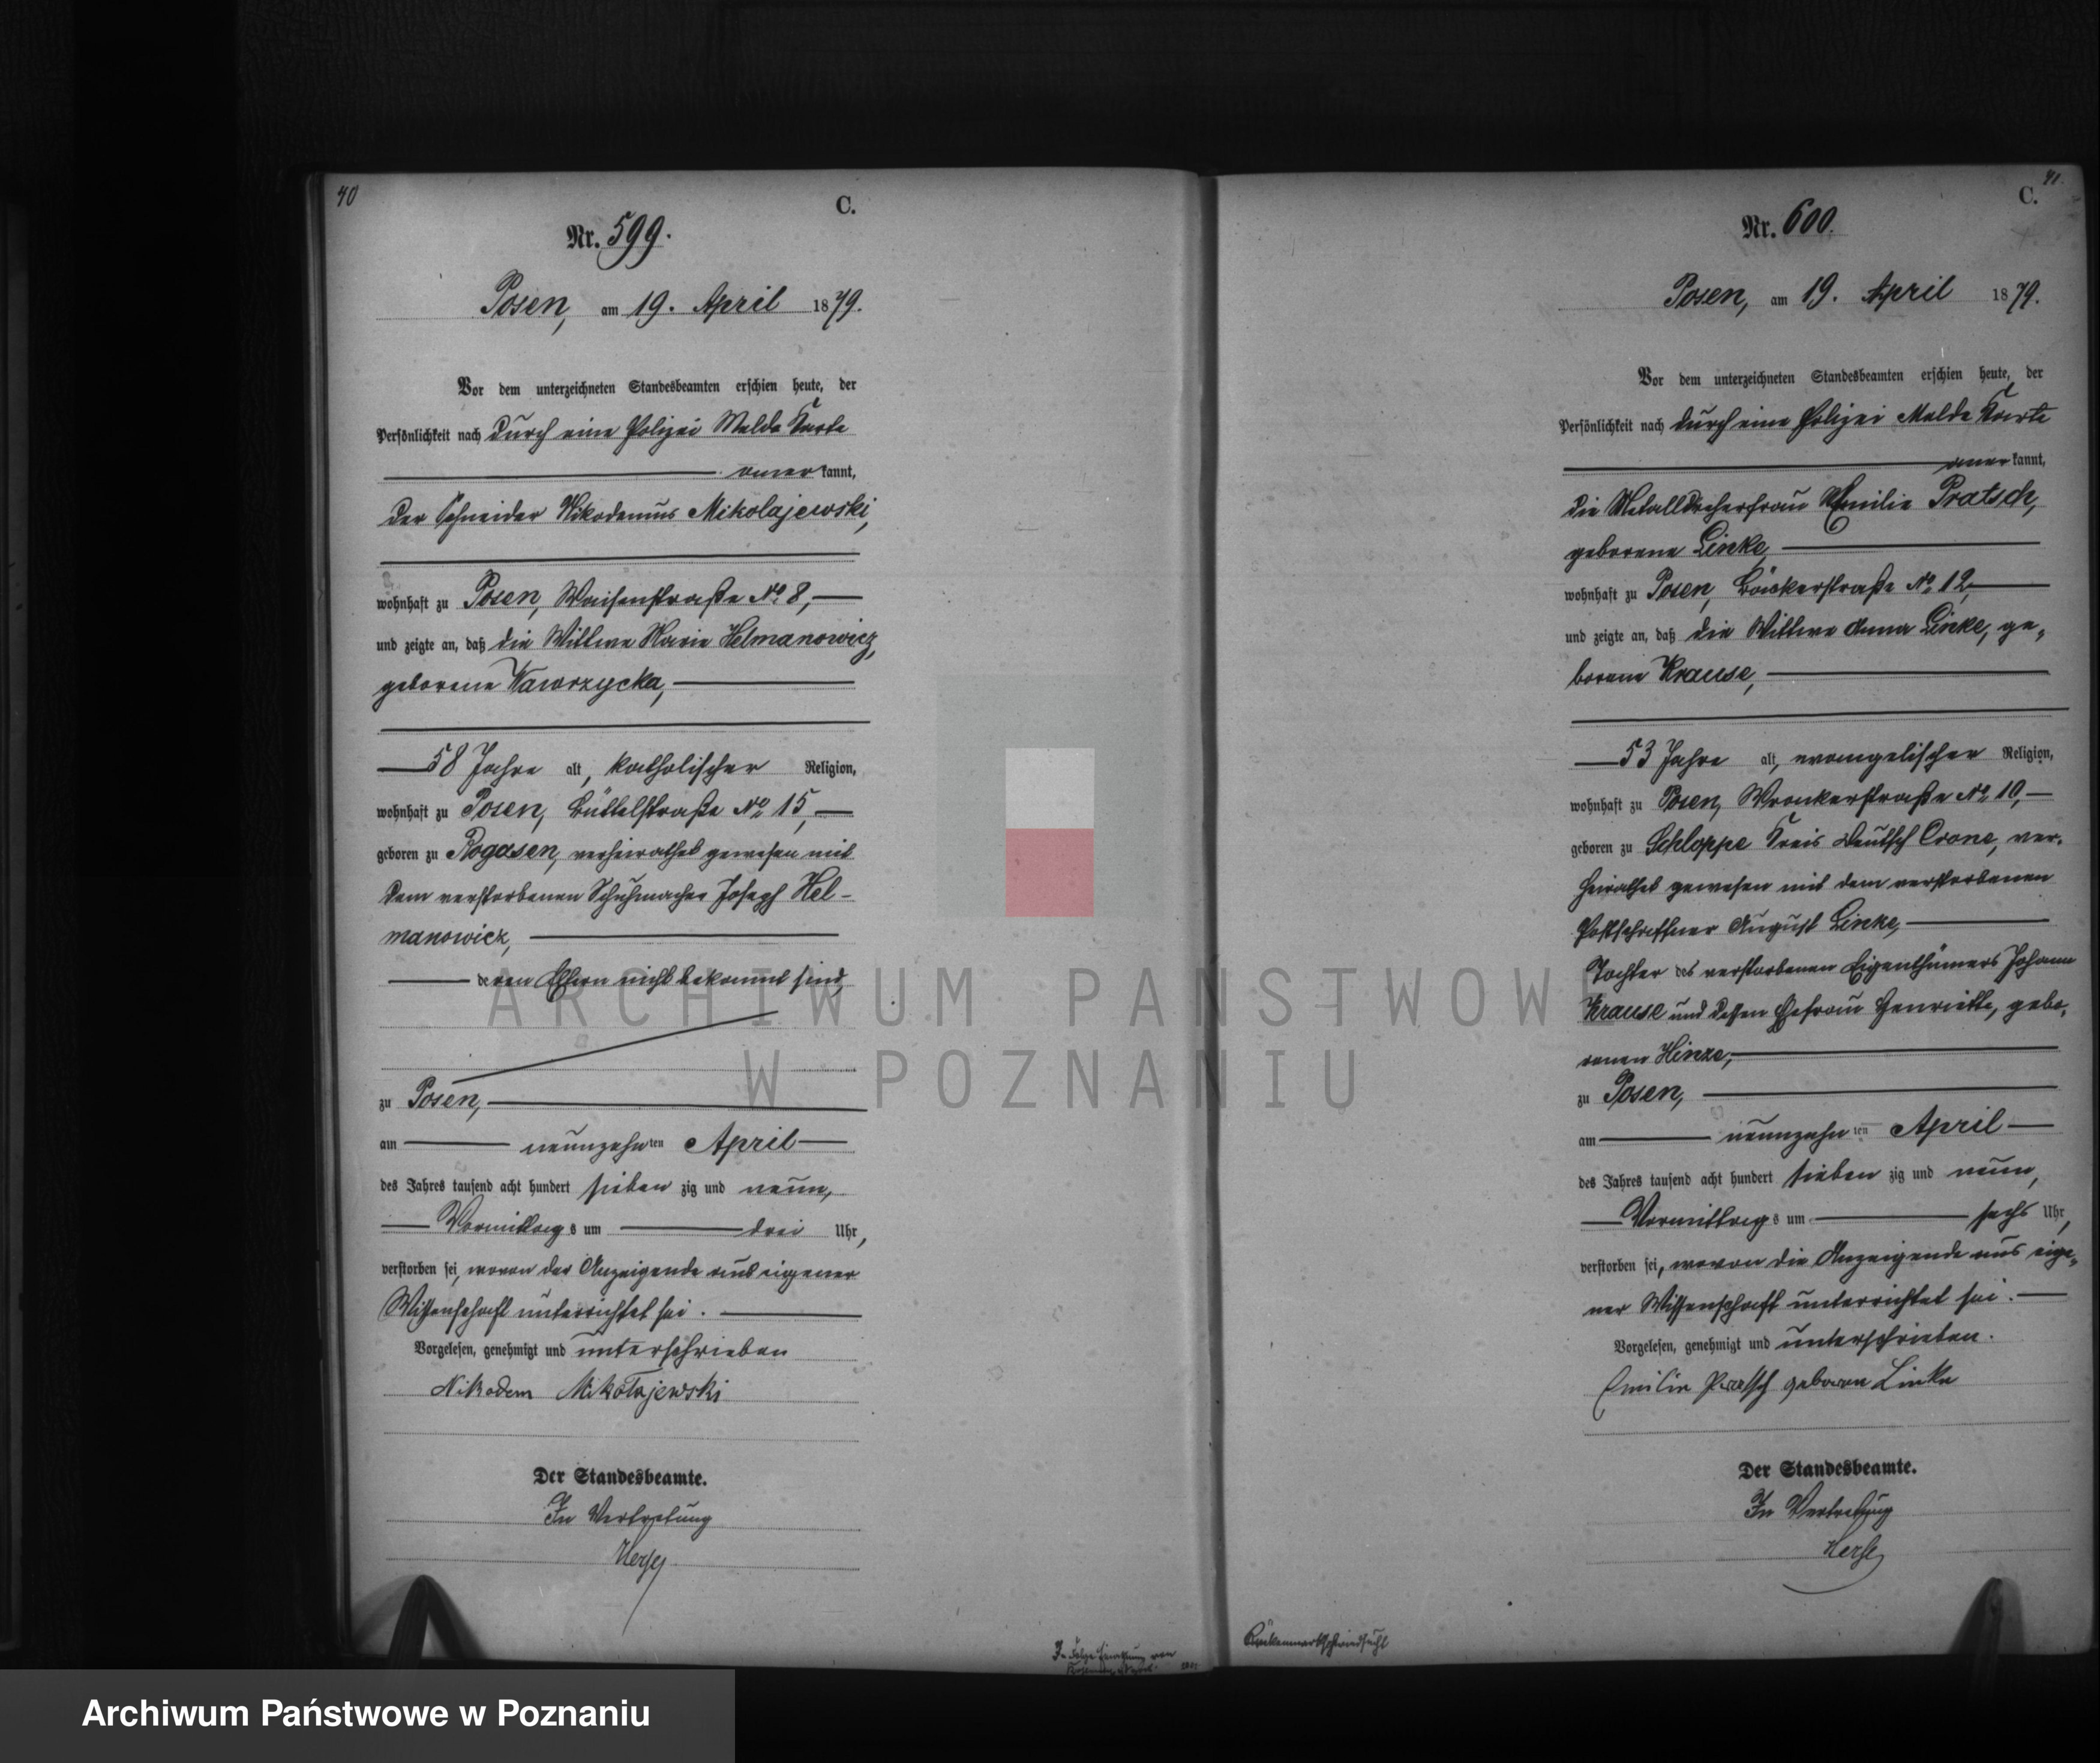 40
C.
Nr. 599.
Posen, am 19. April 1879.
Vor dem unterzeichneten Standesbeamten erschien heute, der
Persönlichkeit nach durch eine Polizei Melde Karte
anerkannt,
der Schneider Nikodemus Mikolajewski,
wohnhaft zu Posen, Waisenstraße No 8,
und zeigte an, daß die Wittwe Marie Helmanowicz,
geborene Nawrzycka,
58 Jahre alt, katholischer Religion,
wohnhaft zu Posen, Büttelstraße No 15,
geboren zu Rogasen, verheirathet gewesen mit
dem verstorbenen Schuhmacher Joseph Hel-
manowicz,
deren Eltern nicht bekannt sind,
zu Posen,
am neunzehnten April
des Jahres tausend acht hundert siebenzig und neun,
Vormittags um drei Uhr,
verstorben sei, wovon der Anzeigende aus eigener
Wissenschaft unterrichtet sei.
Vorgelesen, genehmigt und unterschrieben
Nikodem Mikołajewski
Der Standesbeamte.
In Vertretung
Herse
In Folge von
41.
C.
Nr. 600.
Posen, am 19. April 1879.
Vor dem unterzeichneten Standesbeamten erschien heute, der
Persönlichkeit nach durch eine Polizei Melde Karte
anerkannt,
die Metalldreherfrau Emilie Pratsch,
geborene Linke,
wohnhaft zu Posen, Bäckerstraße No 12,
und zeigte an, daß die Wittwe Anna Linke, ge-
borene Krause,
53 Jahre alt, evangelischer Religion,
wohnhaft zu Posen, Wronkerstraße No 10,
geboren zu Schloppe Kreis Deutsch Crone, ver-
heirathet gewesen mit dem verstorbenen
Postschaffner August Linke,
Tochter des verstorbenen Eigenthümers Johann
Krause und dessen Ehefrau Henriette, gebo-
renen Hinze,
zu Posen,
am neunzehnten April
des Jahres tausend acht hundert siebenzig und neun,
Vormittags um sechs Uhr,
verstorben sei, wovon die Anzeigende aus eige-
ner Wissenschaft unterrichtet sei.
Vorgelesen, genehmigt und unterschrieben.
Emilie Pratsch geboren Linke
Der Standesbeamte.
In Vertretung
Herse
Rückenmarkschwindsucht
ARCHIWUM PAŃSTWOW
W POZNANIU
Archiwum Państwowe w Poznaniu